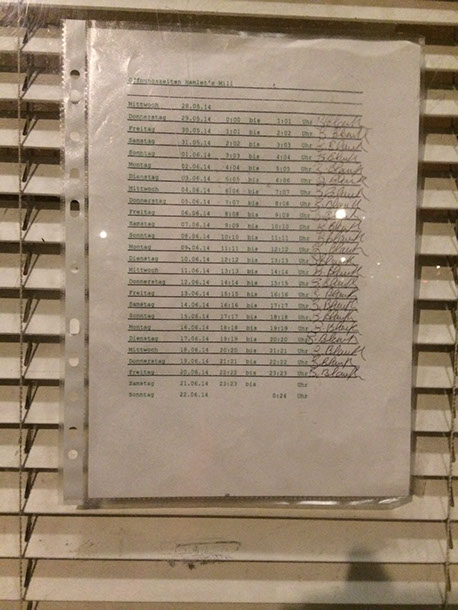 Öffnungszeiten Hamlet's Mill
Mittwoch 28.05.14
Donnerstag 29.05.14 0:00 bis 1:01 Uhr
Freitag 30.05.14 1:01 bis 2:02 Uhr
Samstag 31.05.14 2:02 bis 3:03 Uhr
Sonntag 01.06.14 3:03 bis 4:04 Uhr
Montag 02.06.14 4:04 bis 5:05 Uhr
Dienstag 03.06.14 5:05 bis 6:06 Uhr
Mittwoch 04.06.14 6:06 bis 7:07 Uhr
Donnerstag 05.06.14 7:07 bis 8:08 Uhr
Freitag 06.06.14 8:08 bis 9:09 Uhr
Samstag 07.06.14 9:09 bis 10:10 Uhr
Sonntag 08.06.14 10:10 bis 11:11 Uhr
Montag 09.06.14 11:11 bis 12:12 Uhr
Dienstag 10.06.14 12:12 bis 13:13 Uhr
Mittwoch 11.06.14 13:13 bis 14:14 Uhr
Donnerstag 12.06.14 14:14 bis 15:15 Uhr
Freitag 13.06.14 15:15 bis 16:16 Uhr
Samstag 14.06.14 16:16 bis 17:17 Uhr
Sonntag 15.06.14 17:17 bis 18:18 Uhr
Montag 16.06.14 18:18 bis 19:19 Uhr
Dienstag 17.06.14 19:19 bis 20:20 Uhr
Mittwoch 18.06.14 20:20 bis 21:21 Uhr
Donnerstag 19.06.14 21:21 bis 22:22 Uhr
Freitag 20.06.14 22:22 bis 23:23 Uhr
Samstag 21.06.14 23:23 bis Uhr
Sonntag 22.06.14 0:24 Uhr